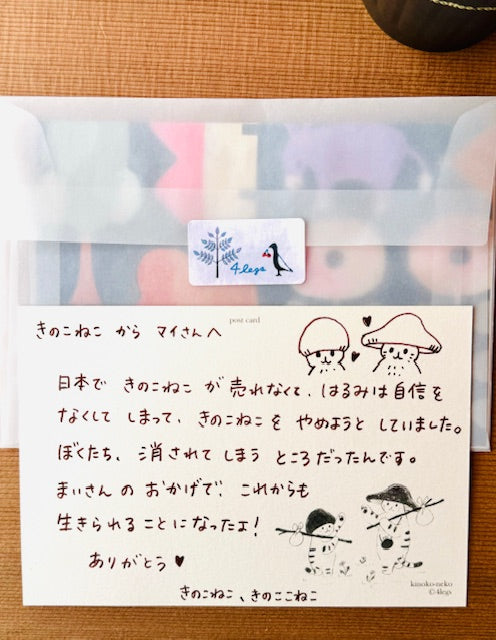 4legs
post card
きのこねこ から マイさんへ
日本で きのこねこ が 売れなくて、はるみは自信を
なくして しまって、きのこねこを やめようと していました。
ぼくたち、消されて しまう ところだったんです。
まいさんの おかげで、これからも
生きられる ことに なったよ!
ありがとう ♥
きのこねこ、きのここねこ
kinoko-neko
©4legs